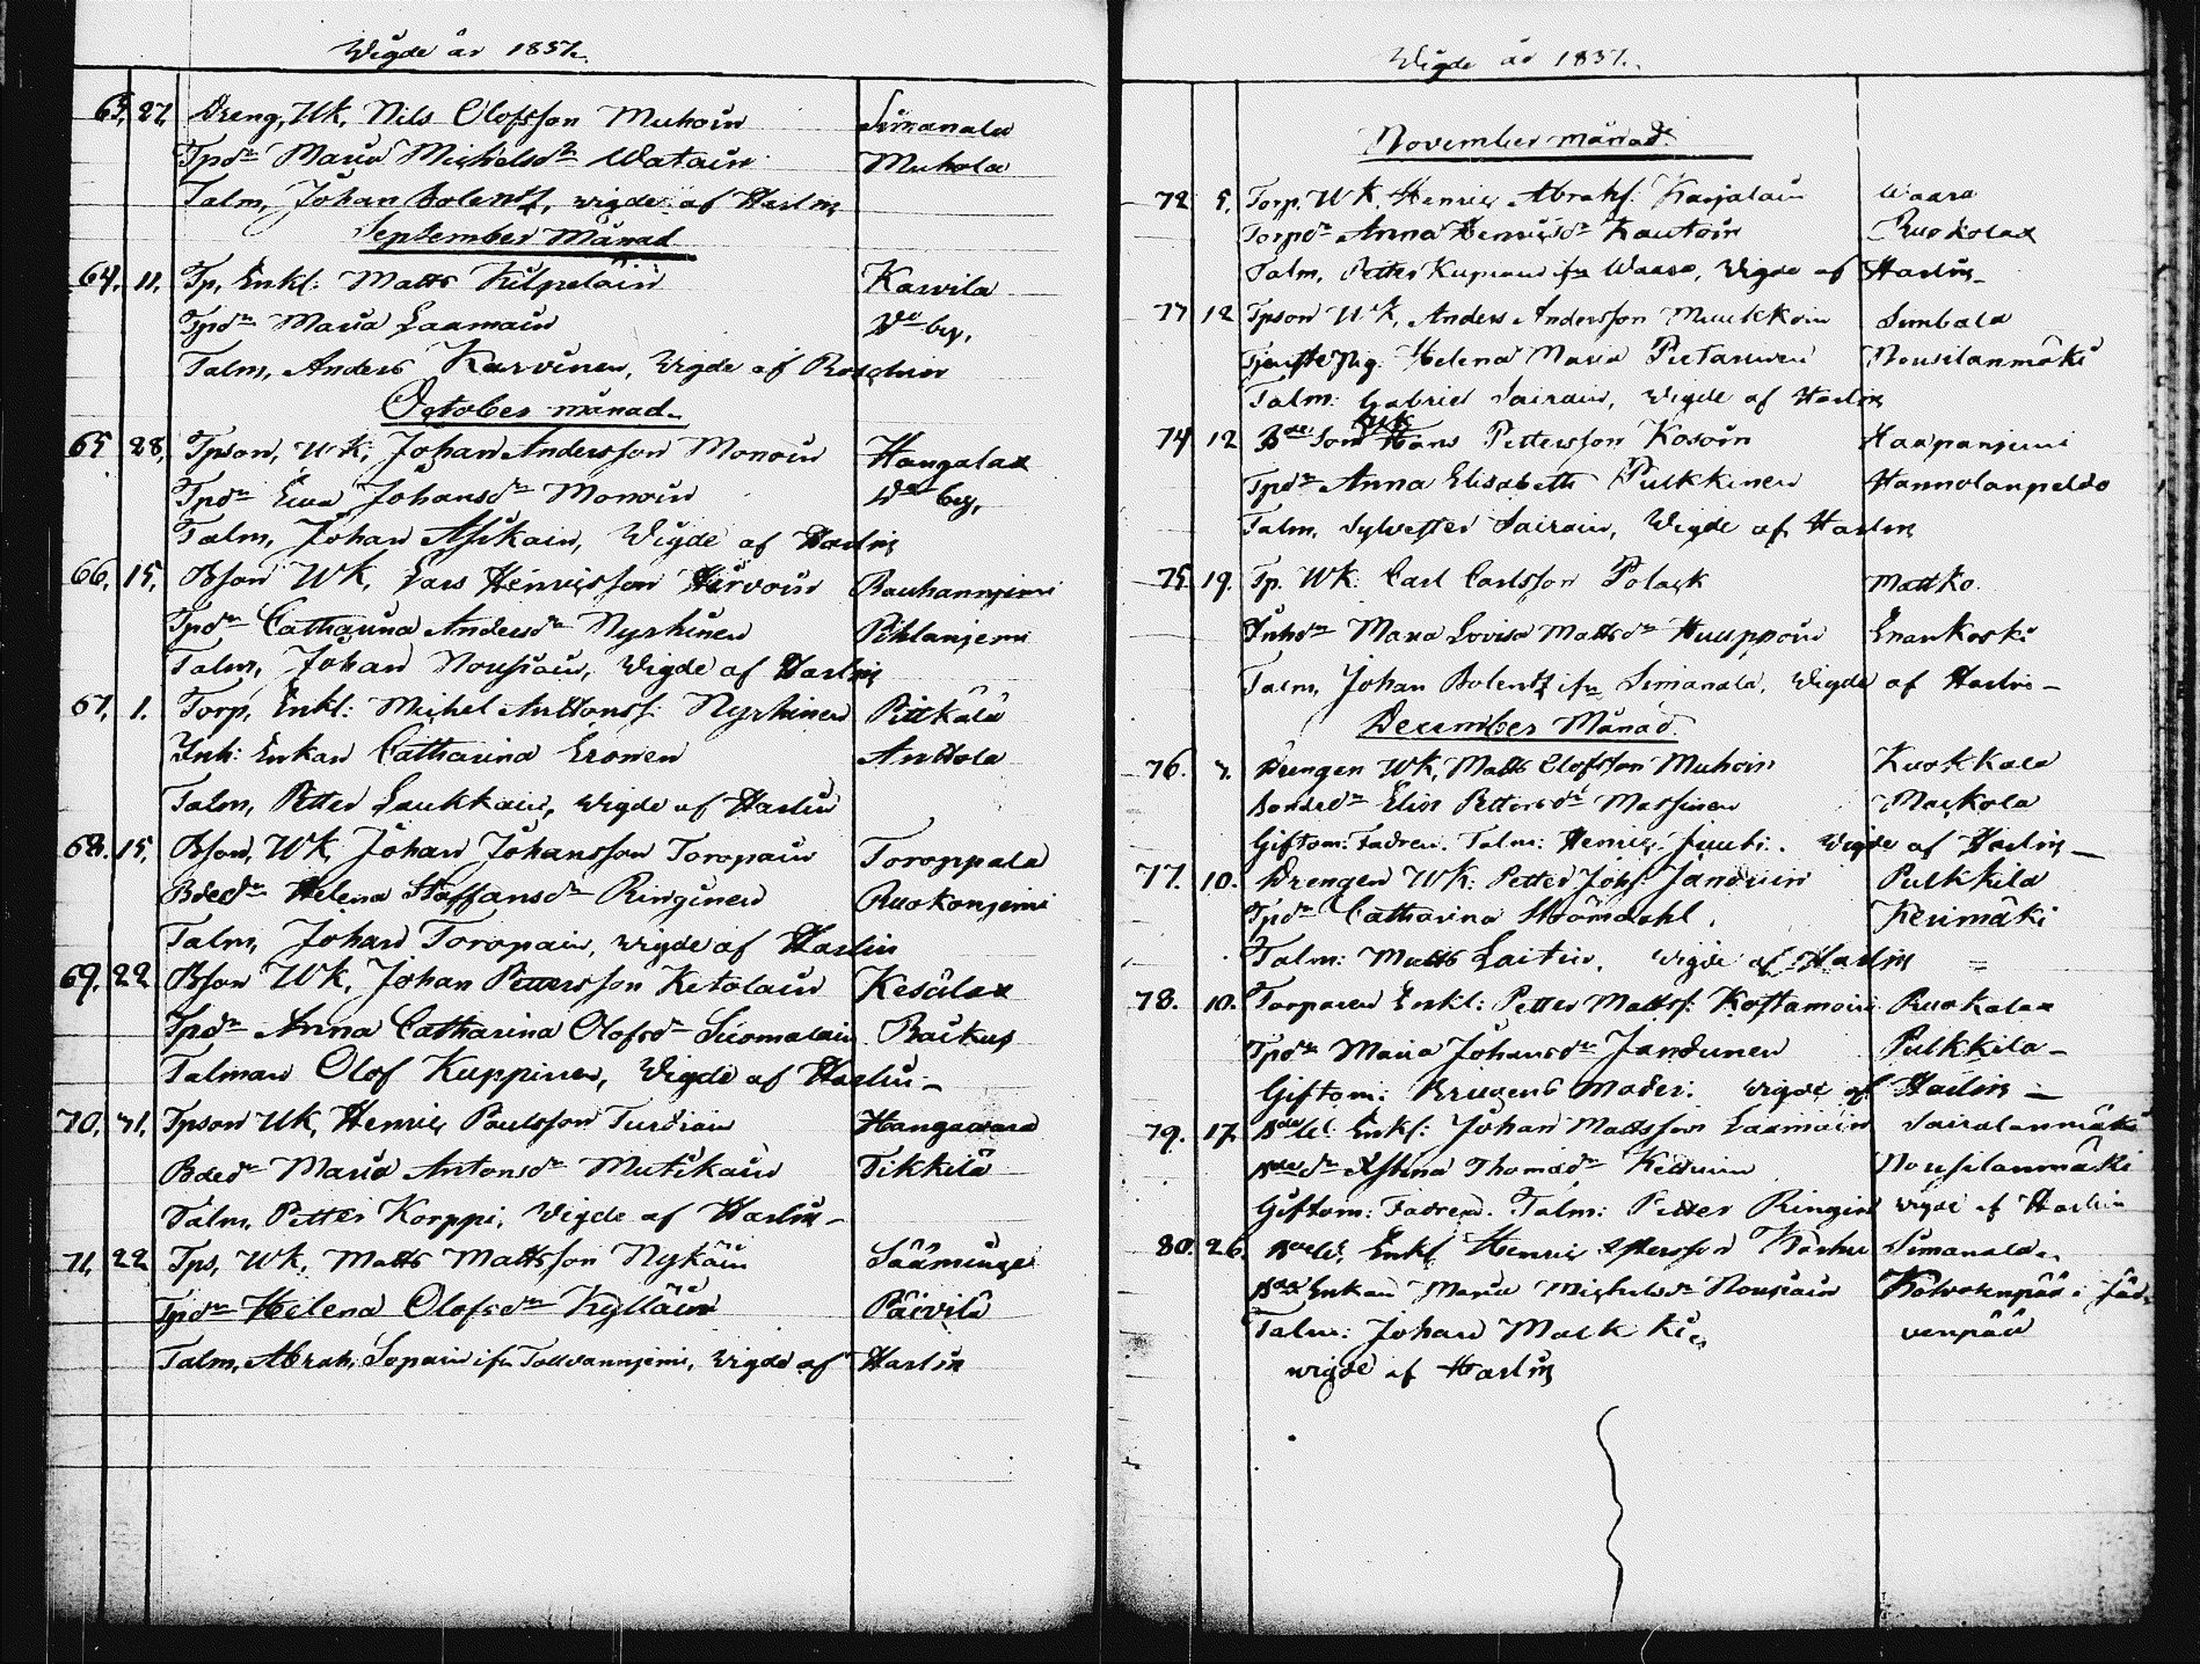 Wigde år 1837.
63. 27. Dreng, UK, Nils Olofsson Muhoin Simanala
Tpdr Maria Michelsdr Watain Muhola
Talm, Johan Bolentz, wigde af Haslin
September Månad
64. 11. Tp, Enkl: Matts Kilpeläin Karvila
Tpdr Maria Laamain Do by,
Talm, Anders Karvinen, Wigde af Roschier
October månad
65 28, Tpson, UK, Johan Andersson Monoin Haugalax
Tpdr Eva Johansdr Monoin Do by,
Talm, Johan Asikain, Wigde af Haslin
66, 15, Bson UK, Lars Henricsson Hirvoin Rauhanniemi
Tpdr Catharina Andersdr Nyrhinen Pihlaniemi
Talm, Johan Nousiain, Wigde af Haslin
67, 1. Torp, Enkl: Michel Anttonss: Nyrhinen Pitkälä
Inh: Enkan Catharina Eronen Anttola
Talm, Petter Laukkain, Wigde af Haslin
68. 15, Bson, UK, Johan Johansson Toropain Toroppala
Bdedr Helena Staffansdr Ringinen Ruokoniemi
Talm, Johan Toropain, wigde af Haslin
69. 22 Bson UK, Johan Pettersson Ketolain Kesälax
Tpdr Anna Catharina Olofsdr Suomalain Backus
Talman Olof Kuppinen, Wigde af Haslin
70, 31, Tpson UK, Henric Paulsson Turtiain Hangaswara
Bdedr Maria Antonsdr Mutikain Tikkilä
Talm, Petter Korppi, Wigde af Haslin
71, 22 Tps, UK, Matts Mattsson Nykäin Sääminge
Tpdr Helena Olofsdr Kylläin Päivilä
Talm, Abrah, Sopain ifn Tolvanniemi, Wigde af Haslin
Wigde år 1837.
November månad.
72 5, Torp. UK. Henric Abrahs: Karjalain Waara
Torpdr Anna Henricsdr Kautoin Ruokolax
Talm, Petter Kupiain ifn Waara, Wigde af Haslin
73 12 Tpson UK, Anders Andersson Muukkoin Simbala
Tjenste Pig. Helena Maria Pietarinen Nousilanmäki
Talm: Gabriel Sairain, Wigde af Haslin
74 12 Bde Son UK Hans Pettersson Kosoin Haapaniemi
Tpdr Anna Elisabeth Pulkkinen Hannolanpeldo
Talm, Sylvester Sairain, Wigde af Haslin
75. 19. Tp. UK: Carl Carlsson Polack Mattko.
Inhdr Maria Lovisa Mattsdr Huuppoin Enankoski
Talm, Johan Bolentz ifn Simanala, Wigde af Haslin
December Månad.
76. 3. Drengen UK, Matts Olofsson Muhoin Kuokkala
Bondedr Elin Pettersdr Massinen Mackola
Giftom: Fadren. Talm: Henric Juuti. Wigde af Haslin
77. 10. Drengen UK: Petter Johs: Janduin Pulkkila
Tpdr Catharina Strömdahl Kerimäki
Talm: Matts Laitin. wigde af Haslin
78. 10. Torparen Enkl: Petter Mattss: Kostamoin Ruokolax
Tpdr Maria Johansdr Jandunen Pulkkila
Giftom: Brudens moder: wigde af Haslin
79. 17. Enkl: Johan Mattsson Laamain Sairalanmäki
Stina Thomasdr Nousilanmäki
Giftom: Fadren. Talm: Petter Ringin wigde af Haslin
80. 26. Enkl Henric Karhu Simanala
Enkan Maria Michelsdr Nousiain Kolvoknpää i Jäd-
Talm: Johan Malkki venpää
wigde af Haslin